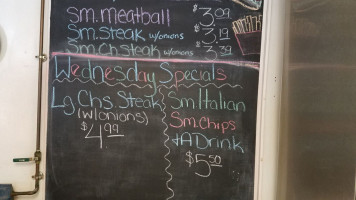 Sm. Meatball $3.09
Sm. Steak w/onions $3.19
Sm. Ch. Steak w/onions $3.39
Wednesday Specials
Lg Chs. Steak
(w/onions)
$4.99
Sm Italian
Sm. Chips
+A Drink
$5.50